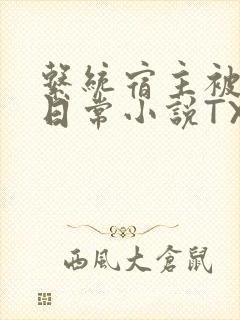 繫統宿主被
日常小說TX
西風大倉鼠